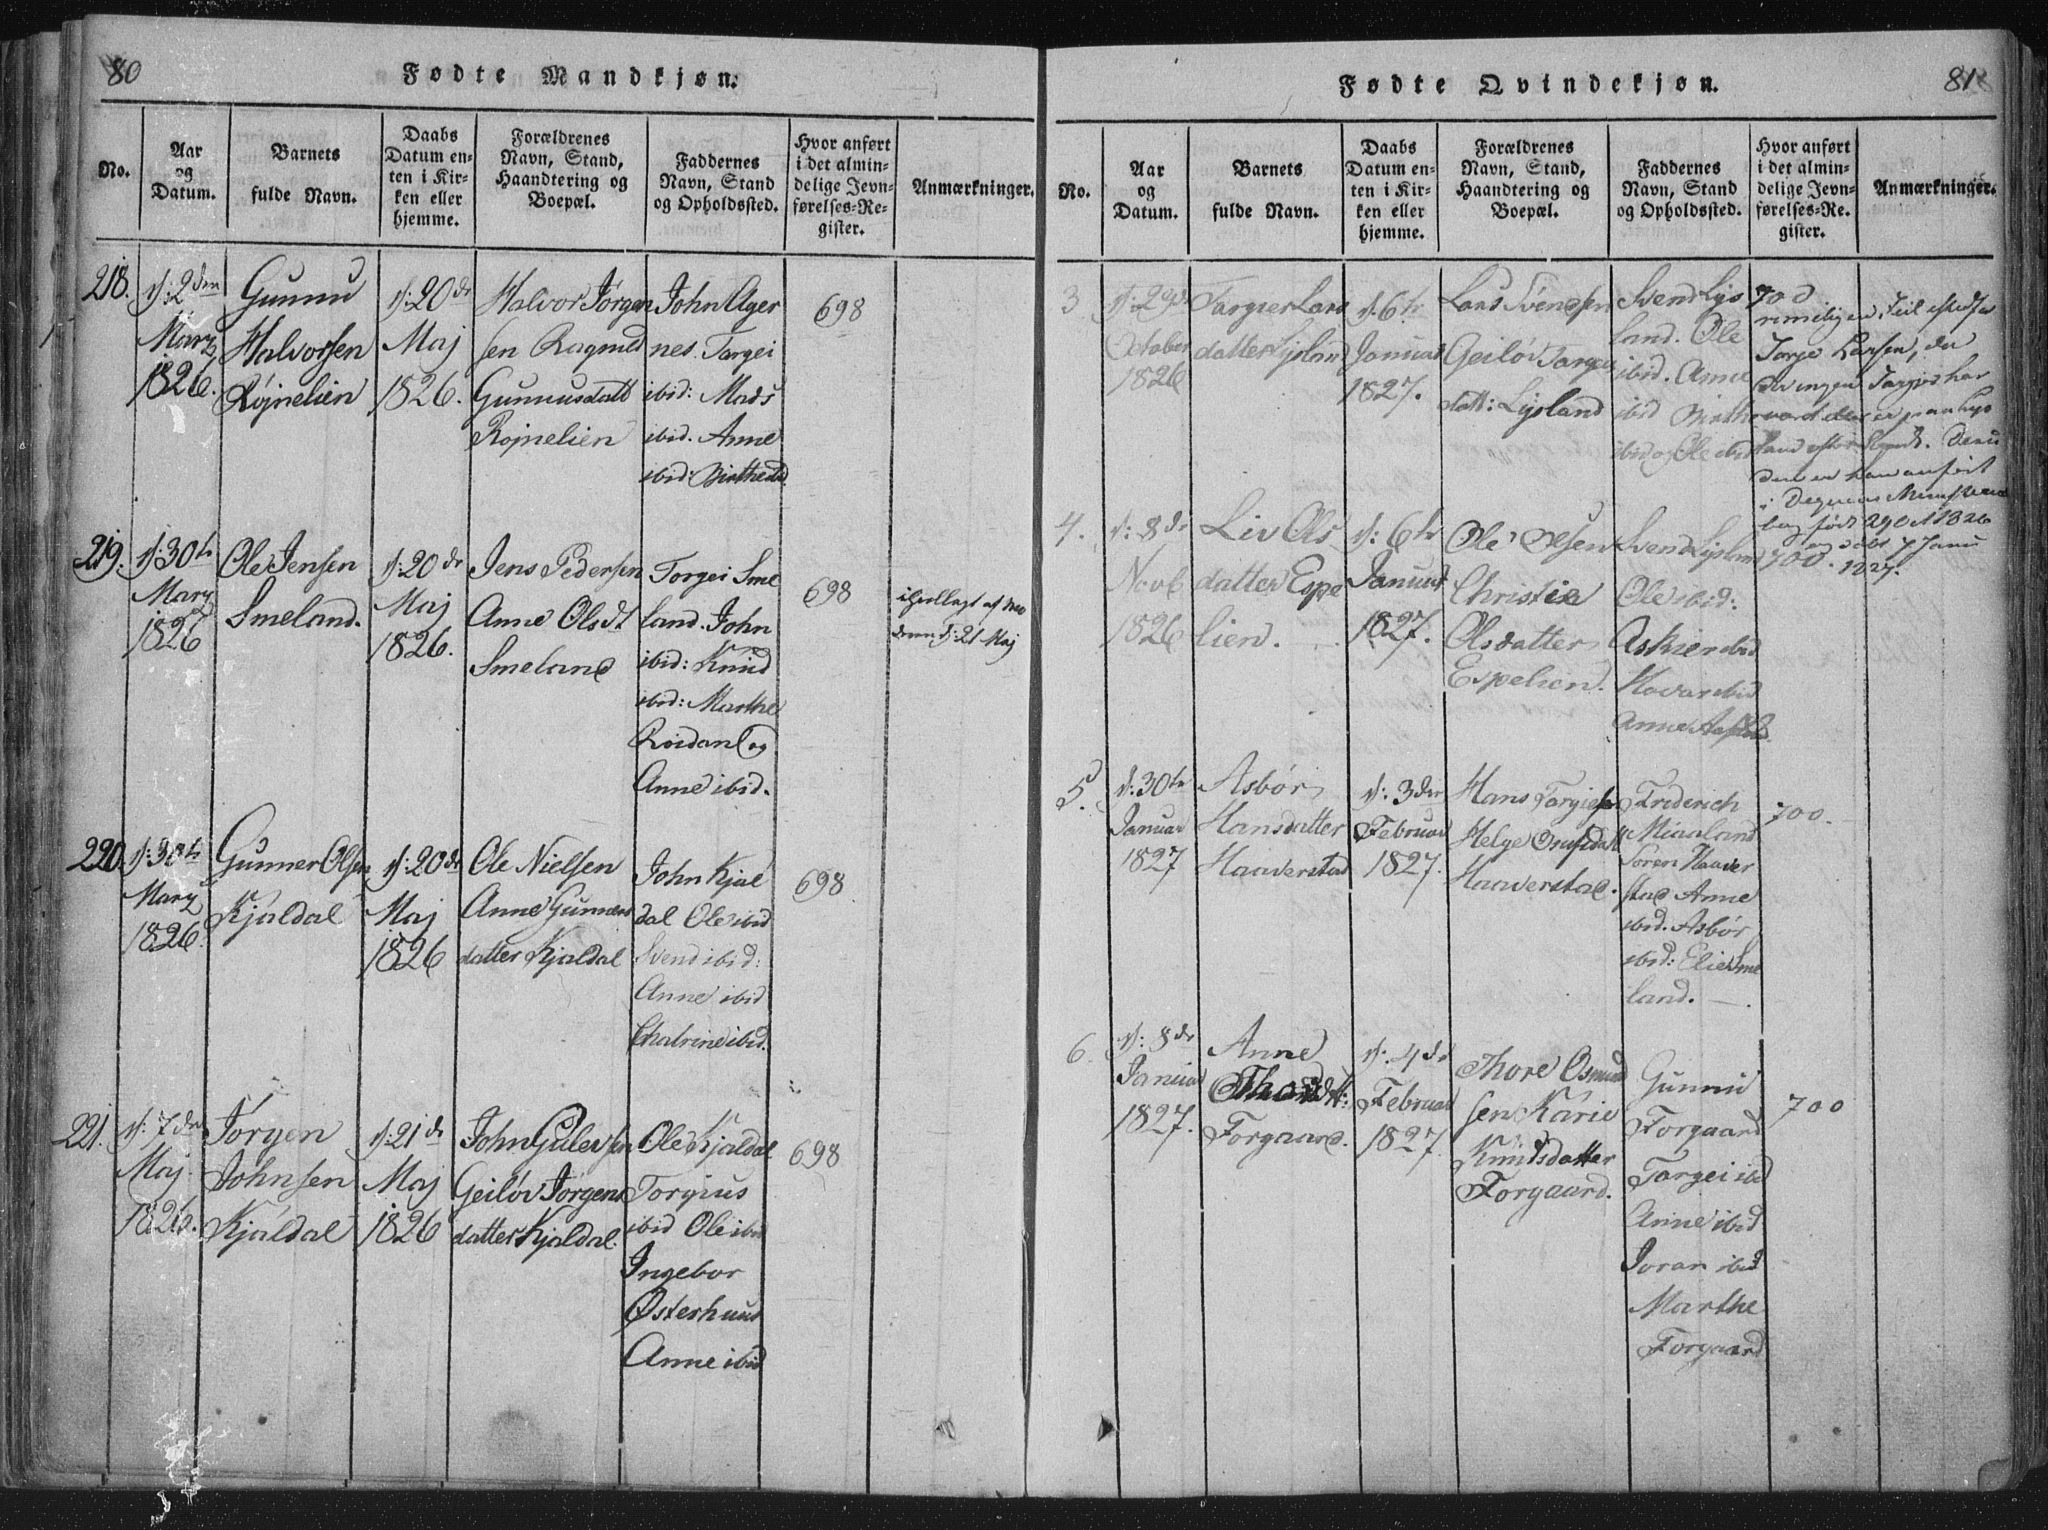 80
Fødte Mandkjøn.
No.
Aar
og
Datum.
Barnets
fulde Navn.
Daabs
Datum en-
ten i Kir-
ken eller
hjemme.
Forældrenes
Navn, Stand,
Haandtering og
Boepæl.
Faddernes
Navn, Stand
og Opholdssted.
Hvor anført
i det almin-
delige Jevn-
førelses-Re-
gister.
Anmærkninger.
218.
d: 2den
Marz
1826.
Gunnu
Halvorsen
Røjnelien
d: 20de
Maj
1826.
Halvor Jørgen
sen Ragnild
Gunnusdatt
Rojnelien
John Ager
nes. Targei
ibid: Mads
ibid. Anne
ibid: Birthe ibid
698
219.
d: 30te
Marz
1826
Ole Jensen
Smeland.
d: 20de
Maj
1826.
Jens Pedersen
Anne Olsdt
Smeland
Torgei Sme
land. John
ibid: Knud
ibid: Marthe
Roidand og
Anne ibid.
698
d: 21 Maj
220.
d: 30te
Marz
1826.
Gunner Olsen
Kjaldal
d: 20de
Maj
1826
Ole Nielsen
Anne Gunners
datter Kjaldal
John Kjal
dal Ole ibid
Svend ibid:
Anne ibid
Chatrine ibid.
698
221.
d: 7de
Maj
1826.
Jørgen
Johnsen
Kjaldal
d: 21de
Maj
1826
John Gulevsen
Geiløv Jørgens
datter Kjaldal.
Ole Kjaldal
Torgius
ibid Ole ibid
Ingebor
Østerhuus
Anne ibid
698
81
Fødte Qvindekjøn.
No.
Aar
og
Datum.
Barnets
fulde Navn.
Daabs
Datum en-
ten i Kir-
ken eller
hjemme.
Forældrenes
Navn, Stand,
Haandtering og
Boepæl.
Faddernes
Navn, Stand
og Opholdssted.
Hvor anført
i det almin-
delige Jevn-
førelses-Re-
gister.
Anmærkninger.
3
d: 29de
October
1826
Targier Lars
datter Lysland
d. 6te
Januar
1827.
Lars Svendsen
Geiløv Targei
datt: Lysland
Svend Lys
land. Ole
ibid. Anne
ibid Birthe
ibid og Ole ibid
700
4.
d: 8de
Novb
1826
Liv Ols
datter Espe
lien.
d: 6te
Januar
1827.
Ole Olsen
Christie
Olsdatter
Espelien.
Svend Lysland
Ole ibid:
Askier ibid
Havar ibid
Anne
700.
1827.
5.
d: 30te
Januar
1827
Asbør
Hansdatter
Haaverstad
d: 3die
Februar
1827.
Hans Targiesen
Helge Osufsdatt
Haaverstad.
Friderich
Miaaland
Søren Haaver
stad Anne
ibid. Asbør
ibid: Elie Sme
land.
700.
6.
d: 8de
Januar
1827.
Anne
Thorsdtt:
Forgaard.
d: 4de
Februar
1827
Thore Osmund
sen Karie
Knudsdatter
Forgaard.
Gunnu
Forgaard
Targei ibid
Anne ibid
Joran ibid
Marthe
Forgaard
700